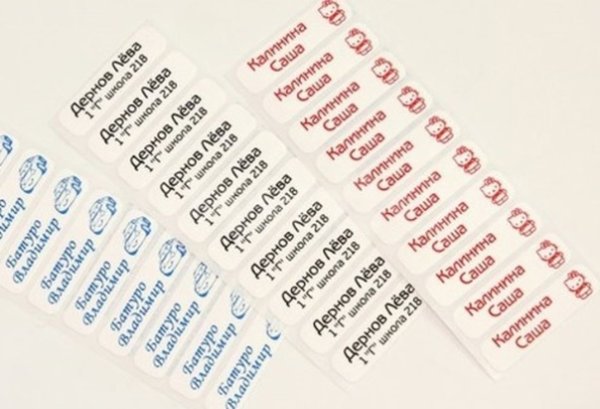 Дернов Лёва
1 "Г" школа 218
Дернов Лёва
1 "Г" школа 218
Дернов Лёва
1 "Г" школа 218
Дернов Лёва
1 "Г" школа 218
Дернов Лёва
1 "Г" школа 218
Дернов Лёва
1 "Г" школа 218
Дернов Лёва
1 "Г" школа 218
Дернов Лёва
1 "Г" школа 218
Дернов Лёва
1 "Г" школа 218
Дернов Лёва
1 "Г" школа 218
Калинина
Саша
Калинина
Саша
Калинина
Саша
Калинина
Саша
Калинина
Саша
Калинина
Саша
Калинина
Саша
Калинина
Саша
Калинина
Саша
Калинина
Саша
Батуро
Владимир
Батуро
Владимир
Батуро
Владимир
Батуро
Владимир
Батуро
Владимир
Батуро
Владимир
Батуро
Владимир